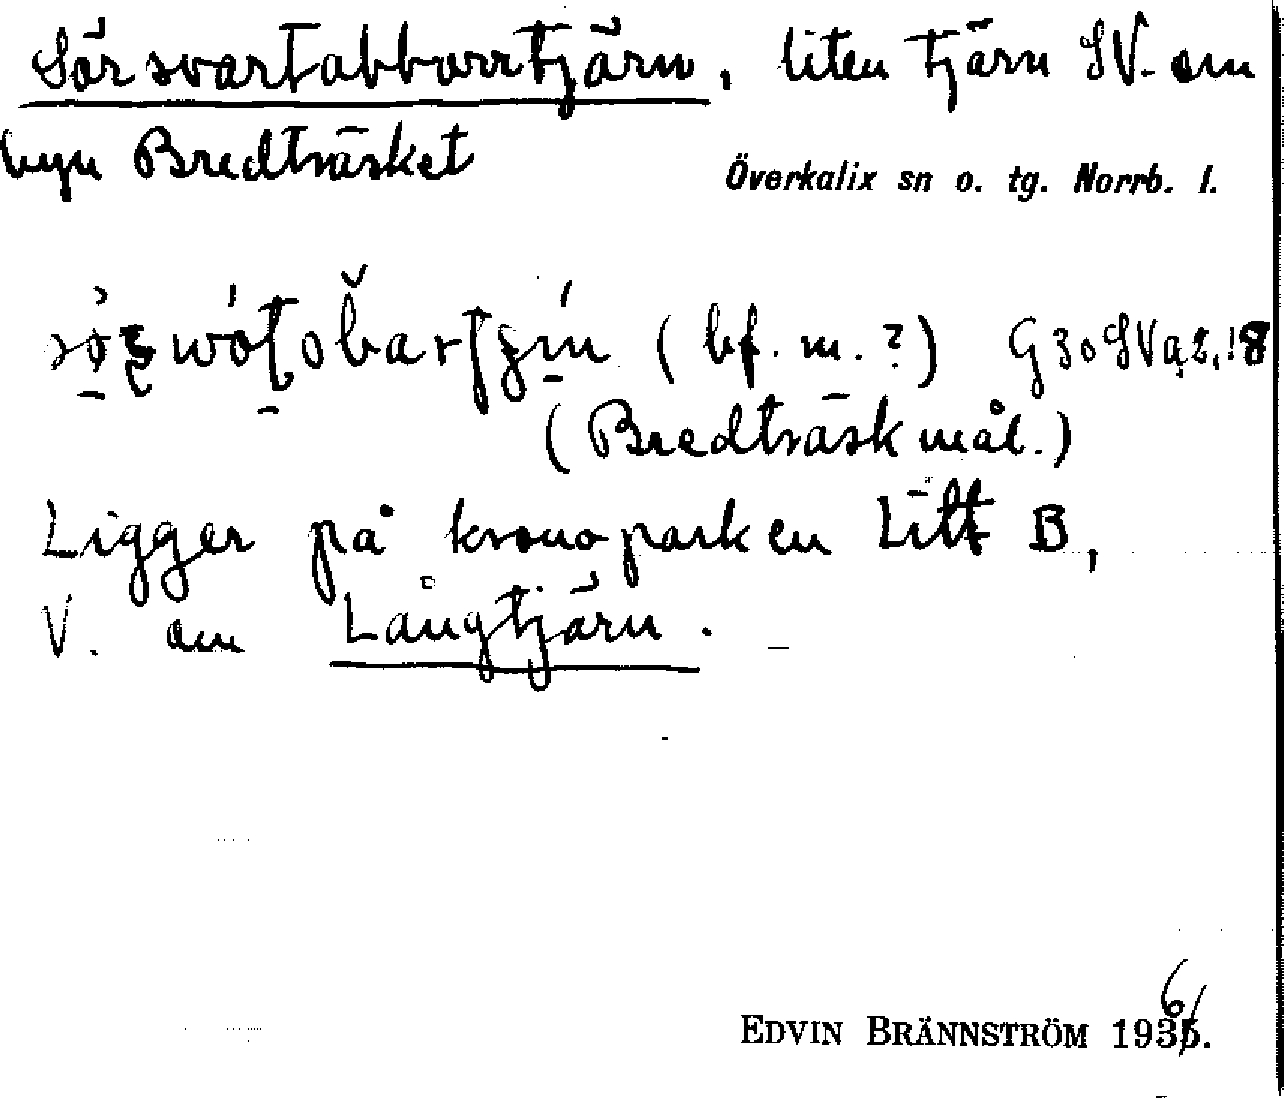 Sörsvartabborrtjärn, liten tjärn SV. om
byn Bredträsket
Överkalix sn o. tg. Norrb. l.
(bf. m. ?) G30SVa2,18
(Bredträskmål.)
Ligger på kronoparken Litt B,
V. om Långtjärn.
EDVIN BRÄNNSTRÖM 1936.